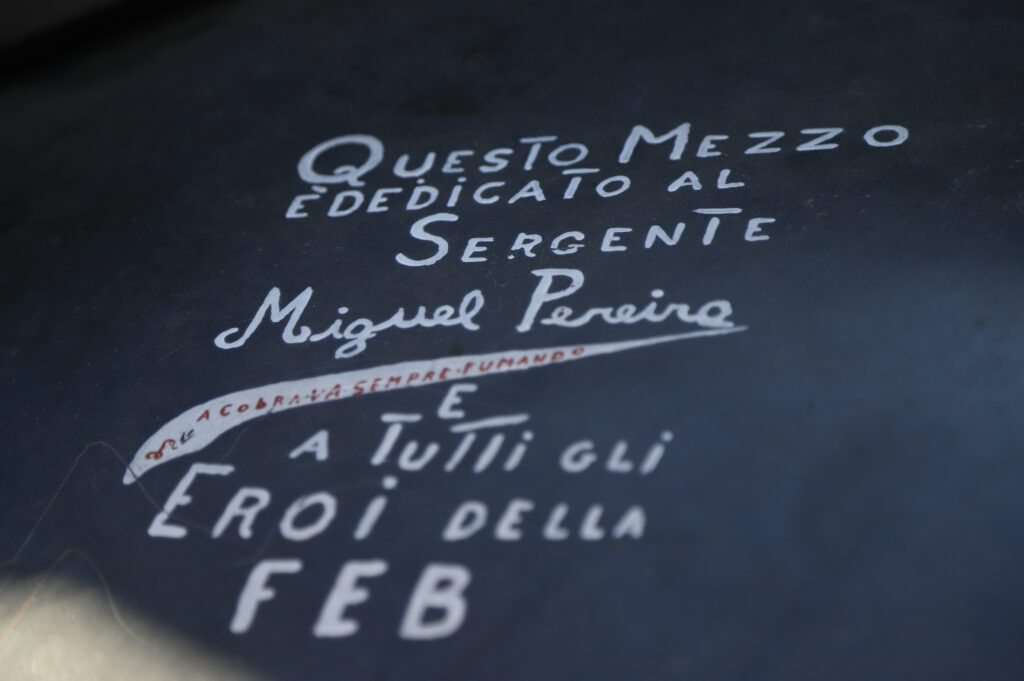 QUESTO MEZZO
ÈDEDICATO AL
SERGENTE
Miguel Pereira
A COBRA-VA-SEMPRE-FUMANDO
E
A TUTTI GLI
EROI DELLA
FEB